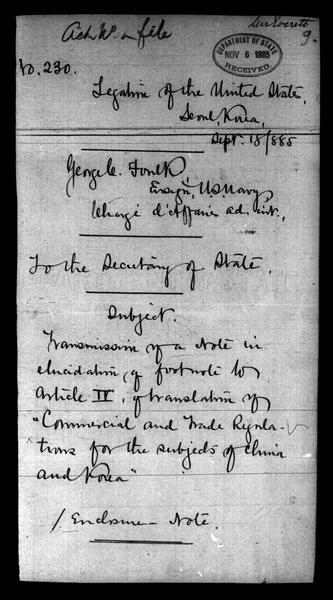 Ack'd & file
Mr Everett
9.
DEPARTMENT OF STATE
NOV 6 1885
RECEIVED
No. 230.
Legation of the United States,
Seoul, Korea,
Sept. 18/885
George C. Foulk,
Ensign, U.S. Navy,
Chargé d'Affaires ad. int.,
To the Secretary of State.
Subject.
Transmission of a Note in
elucidation, of footnote to
Article IV, of translation of
"Commercial and Trade Regula-
tions for the subjects of China
and Korea"
1 Enclosure – Note.